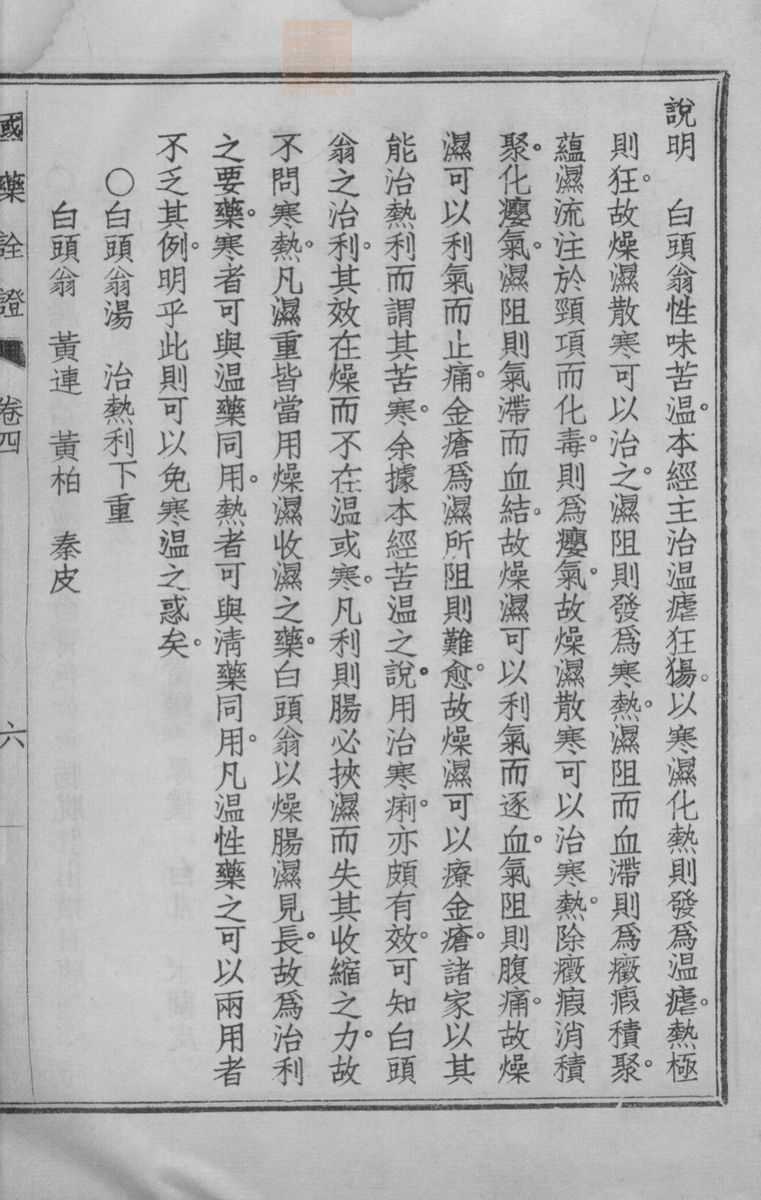 說明　白頭翁性味苦温。本經主治温瘧狂猲。以寒濕化熱則發爲温瘧。熱極
則狂。故燥濕散寒可以治之。濕阻則發爲寒熱。濕阻而血滯則爲癥瘕積聚。
蘊濕流注於頸項而化毒。則爲癭氣。故燥濕散寒可以治寒熱。除癥瘕消積
聚。化癭氣。濕阻則氣滯而血結。故燥濕可以利氣而逐血。氣阻則腹痛。故燥
濕可以利氣而止痛。金瘡爲濕所阻則難愈。故燥濕可以療金瘡。諸家以其
能治熱利而謂其苦寒。余據本經苦温之說。用治寒痢。亦頗有效。可知白頭
翁之治利。其效在燥而不在温或寒。凡利則腸必挾濕而失其收縮之力。故
不問寒熱。凡濕重皆當用燥濕收濕之藥。白頭翁以燥腸濕見長。故爲治利
之要藥。寒者可與温藥同用。熱者可與淸藥同用。凡温性藥之可以兩用者
不乏其例。明乎此則可以免寒温之惑矣。
〇白頭翁湯　治熱利下重
白頭翁　黃連　黃柏　秦皮
國藥詮證　卷四　六